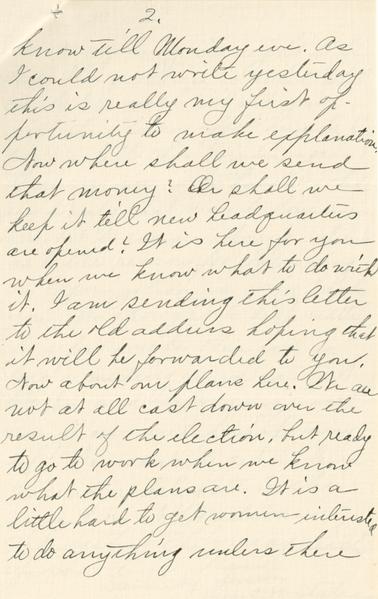 2.
know till Monday eve. As
I could not write yesterday
this is really my first op-
portunity to make explanation.
Now where shall we send
that money? Or shall we
keep it till new headquarters
are opened? It is here for you
when we know what to do with
it. I am sending this letter
to the old address hoping that
it will be forwarded to you.
Now about our plans here. We are
not at all cast down over the
result of the election, but ready
to go to work when we know
what the plans are. It is a
little hard to get women interested
to do anything unless there